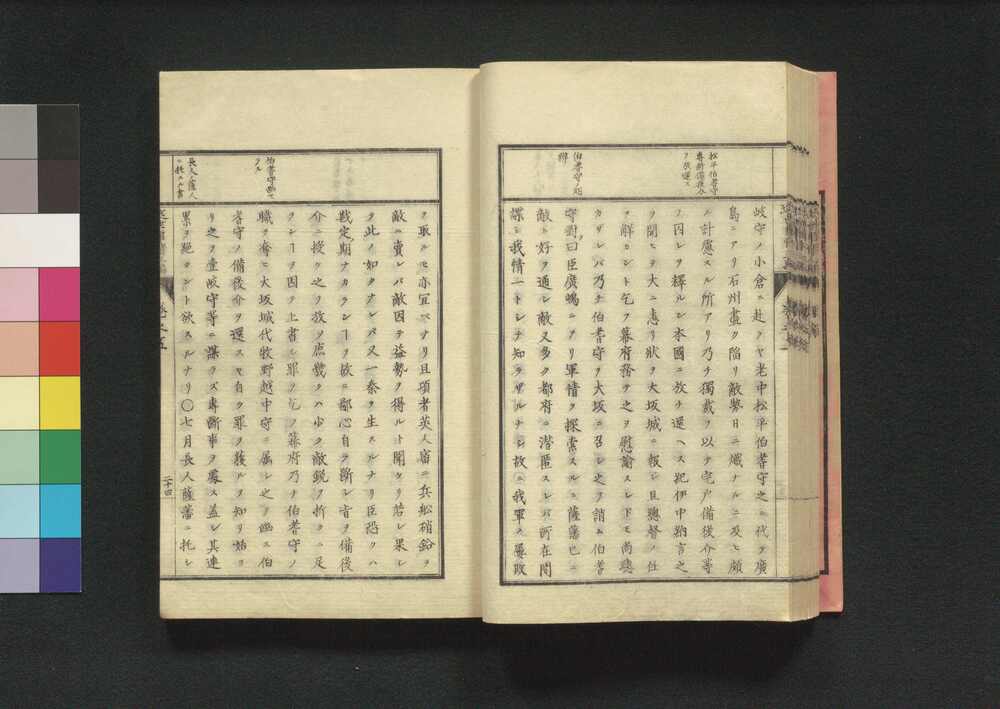 松平伯耆守
専断備後介
ヲ放還ス
岐守ノ小倉ニ赴クヤ老中松平伯耆守之ニ代テ廣
島ニアリ石州盡ク陥リ敵勢日ニ熾ナルニ及ヒ頗
ル計慮スル所アリ乃チ獨裁ヲ以テ宍戸備後介等
ノ囚レヲ釋ルシ本國ニ放チ還ヘス紀伊中納言之
ヲ聞ヒテ大ニ恚リ狀ヲ大坂城ニ報シ且總督ノ任
ヲ解カント乞フ幕府務テ之ヲ慰諭スレドモ尚聴
カザレバ乃チ伯耆守ヲ大坂ニ召シ之ヲ詰ル伯耆
伯耆守ノ
辯
守對曰臣廣嶋ニアリ軍情ヲ探索スルニ薩藩已ニ
敵ト好ヲ通シ敵又多ク都府ニ潜匿スレバ所在間
諜シ我情一トシテ知ラザルナシ故ニ我軍ノ屡敗
ヲ取ルモ亦宜ベナリ且項者英人窃ニ兵舩硝鉛ヲ
敵ニ賣レバ敵因テ益勢ヲ得ルト聞ケリ若シ果シ
テ此ノ如クナレバ又一秦ヲ生スルナリ臣恐クハ
伯耆守幽セ
ラル
戡定期ナカランヿヲ故ニ鄙心自ラ断シ旨ヲ備後
介ニ授ケ之ヲ放ツ庶幾クハ少ク敵鋭ヲ折クニ足
ランヿヲ因テ上書シ罪ヲ乞フ幕府乃チ伯耆守ノ
職ヲ奪ヒ大坂城代牧野越中守ニ属シ之ヲ幽ス伯
耆守ノ備後介ヲ還スヤ自ラ罪ヲ獲ルヲ知リ始ヨ
リ之ヲ壹岐守等ニ謀ラズ専断事ヲ處ス蓋シ其連
長人薩人
ニ托スル書
累ヲ絶タント欲スルナリ〇七月長人薩藩ニ托シ
二十四